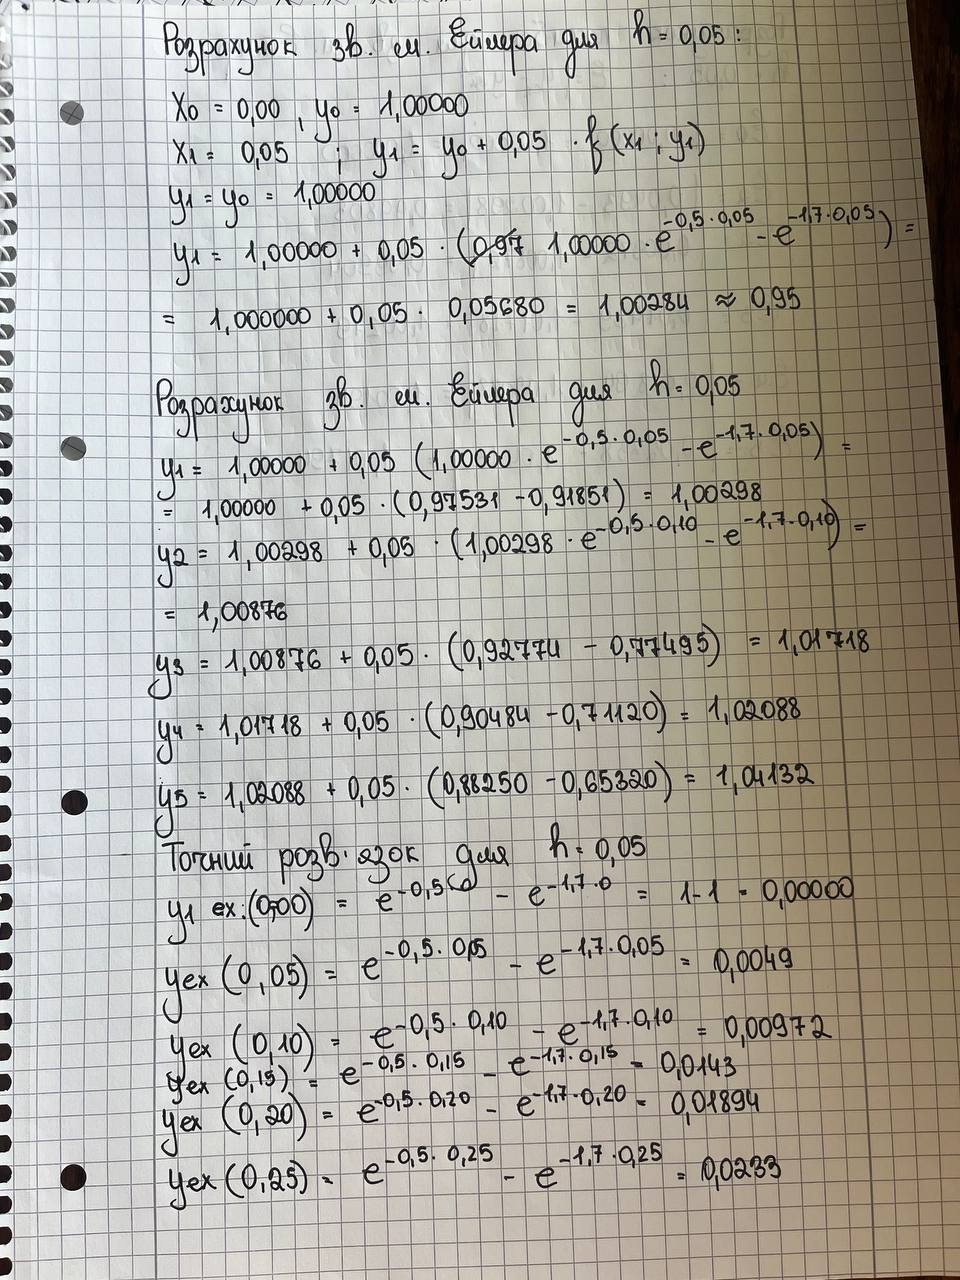 Розрахунок зв. м. Ейлера для h = 0,05:
X0 = 0,00 , y0 = 1,00000
X1 = 0,05 ; y1 = y0 + 0,05 · f (x1 ; y1)
y1 = y0 = 1,00000
y1 = 1,00000 + 0,05 · (0,97 1,00000 · e^-0,5·0,05 - e^-1,7·0,05) =
= 1,000000 + 0,05 · 0,05680 = 1,00284 ≈ 0,95
Розрахунок зв. м. Ейлера для h = 0,05
y1 = 1,00000 + 0,05 (1,00000 · e^-0,5·0,05 - e^-1,7·0,05) =
= 1,00000 + 0,05 · (0,97531 - 0,91851) = 1,00298
y2 = 1,00298 + 0,05 · (1,00298 · e^-0,5·0,10 - e^-1,7·0,10) =
= 1,00876
y3 = 1,00876 + 0,05 · (0,92774 - 0,77495) = 1,01718
y4 = 1,01718 + 0,05 · (0,90484 - 0,71120) = 1,02088
y5 = 1,02088 + 0,05 · (0,88250 - 0,65320) = 1,04132
Точний розв·язок для h = 0,05
y1 ex: (0,00) = e^-0,5·0 - e^-1,7·0 = 1-1 = 0,00000
yex (0,05) = e^-0,5·0,05 - e^-1,7·0,05 = 0,0049
yex (0,10) = e^-0,5·0,10 - e^-1,7·0,10 = 0,00972
yex (0,15) = e^-0,5·0,15 - e^-1,7·0,15 = 0,0143
yex (0,20) = e^-0,5·0,20 - e^-1,7·0,20 = 0,01894
yex (0,25) = e^-0,5·0,25 - e^-1,7·0,25 = 0,0233